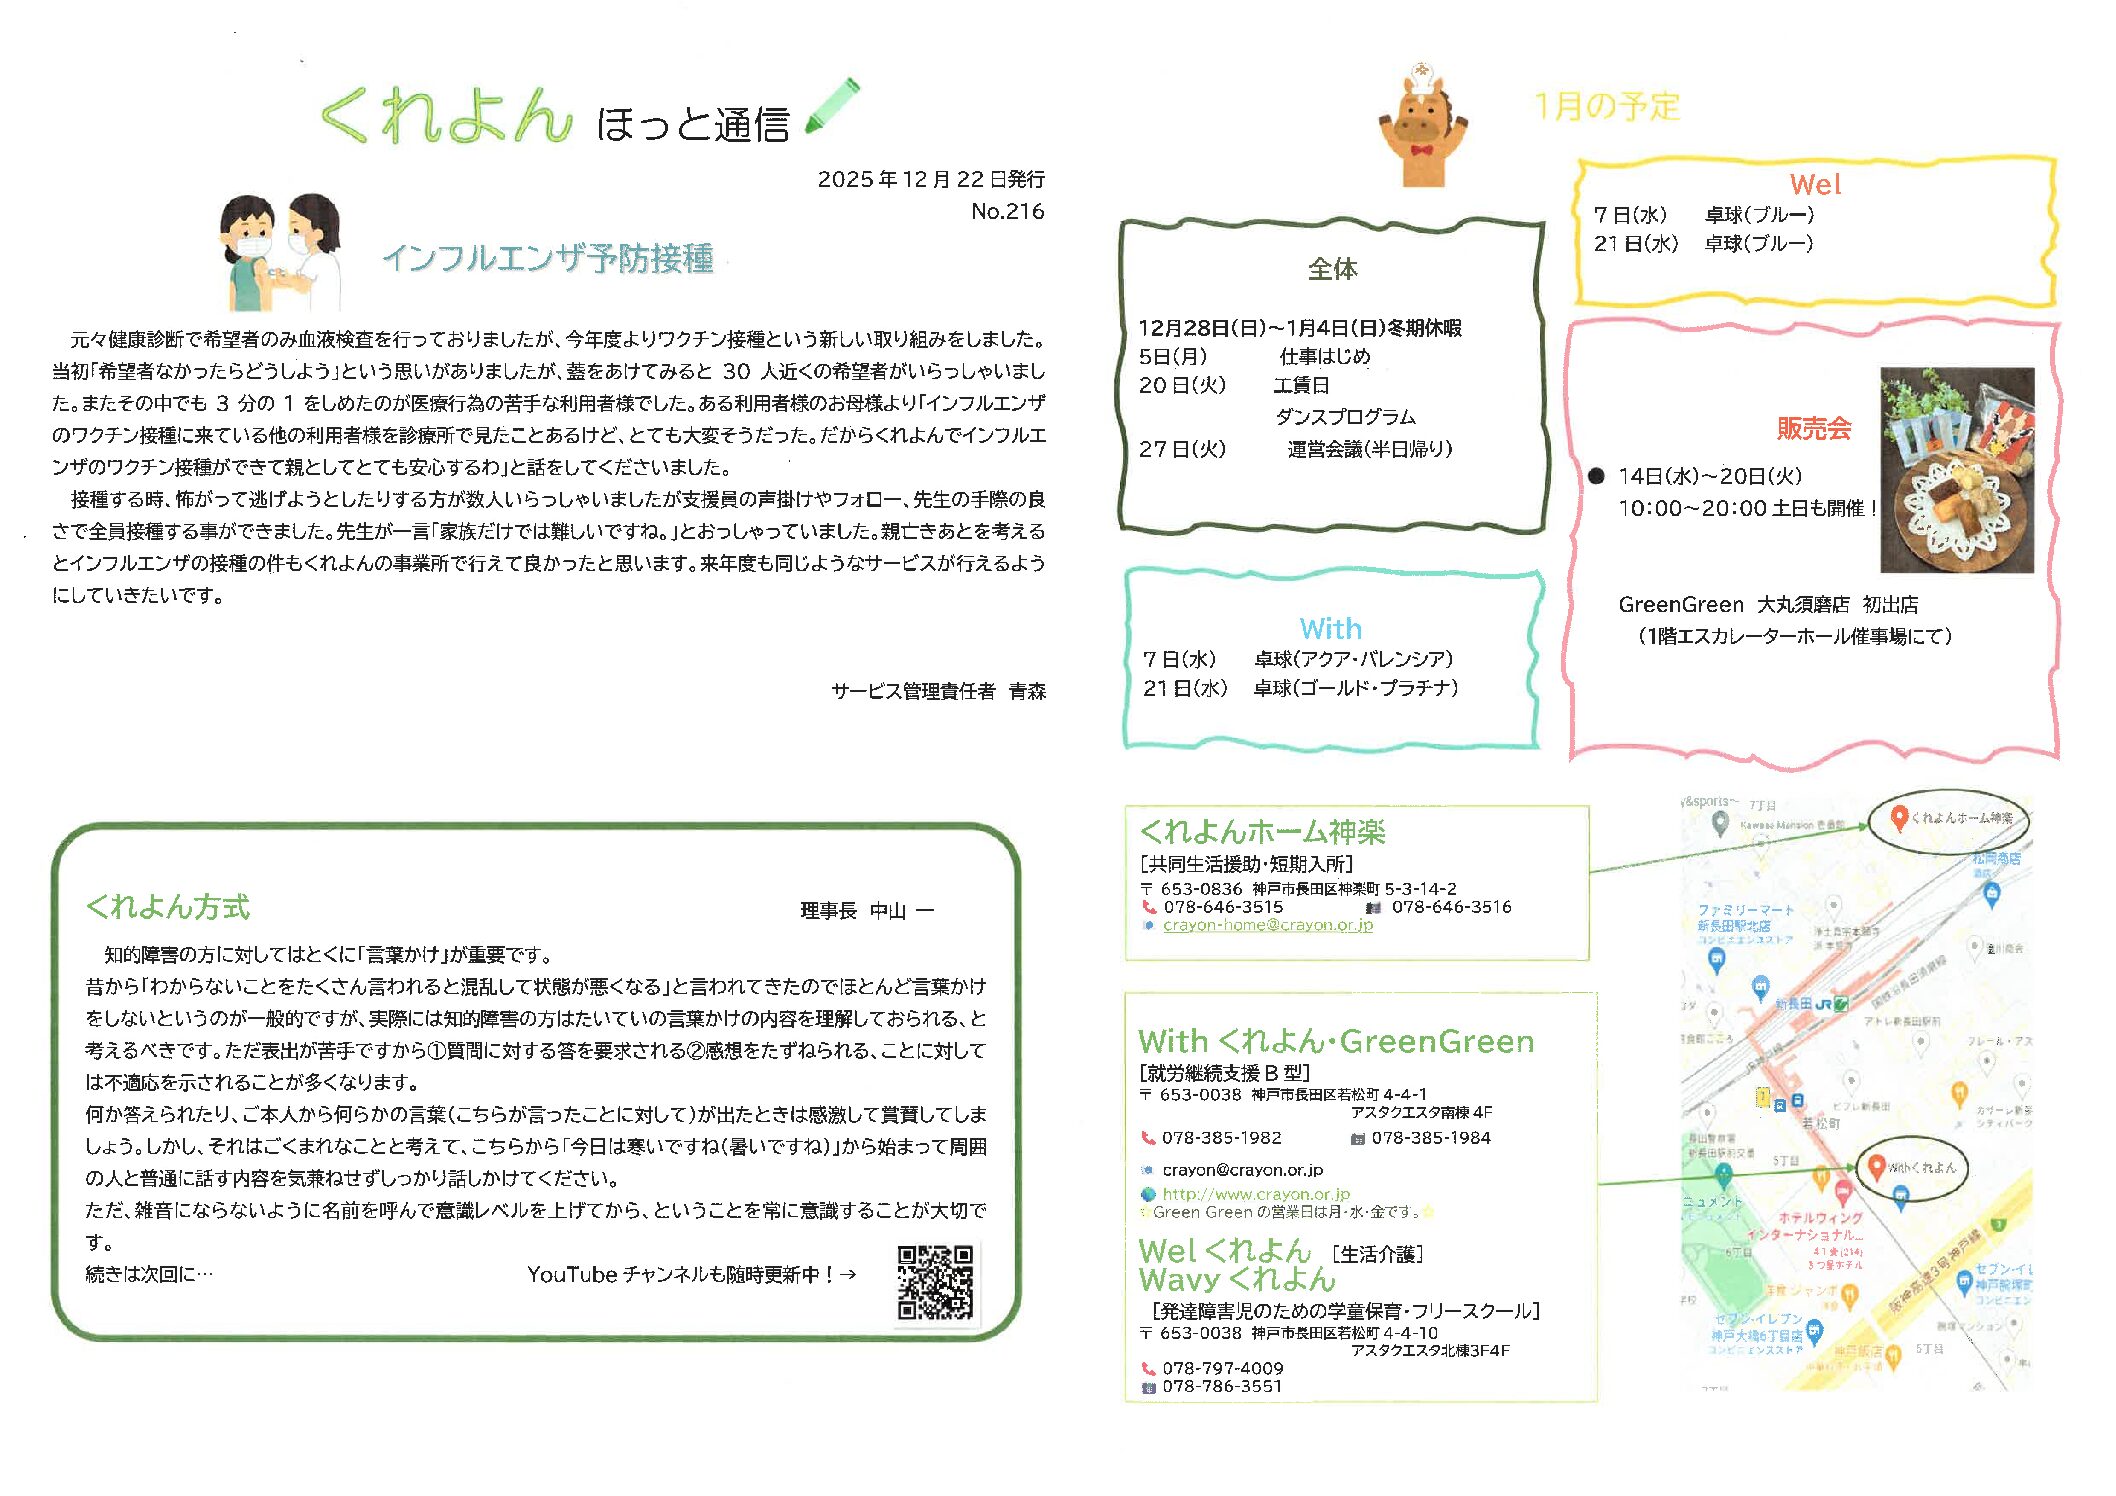 くれよん ほっと通信
2025年12月22日発行
No.216
インフルエンザ予防接種
元々健康診断で希望者のみ血液検査を行っておりましたが、今年度よりワクチン接種という新しい取り組みをしました。
当初「希望者なかったらどうしよう」という思いがありましたが、蓋をあけてみると 30 人近くの希望者がいらっしゃいまし
た。またその中でも 3 分の 1 をしめたのが医療行為の苦手な利用者様でした。ある利用者様のお母様より「インフルエンザ
のワクチン接種に来ている他の利用者様を診療所で見たことあるけど、とても大変そうだった。だからくれよんでインフルエ
ンザのワクチン接種ができて親としてとても安心するわ」と話をしてくださいました。
接種する時、怖がって逃げようとしたりする方が数人いらっしゃいましたが支援員の声掛けやフォロー、先生の手際の良
さで全員接種する事ができました。先生が一言「家族だけでは難しいですね。」とおっしゃっていました。親亡きあとを考える
とインフルエンザの接種の件もくれよんの事業所で行えて良かったと思います。来年度も同じようなサービスが行えるよう
にしていきたいです。
サービス管理責任者 青森
くれよん方式
理事長 中山 一
知的障害の方に対してはとくに「言葉かけ」が重要です。
昔から「わからないことをたくさん言われると混乱して状態が悪くなる」と言われてきたのでほとんど言葉かけ
をしないというのが一般的ですが、実際には知的障害の方はたいていの言葉かけの内容を理解しておられる、と
考えるべきです。ただ表出が苦手ですから①質問に対する答を要求される②感想をたずねられる、ことに対して
は不適応を示されることが多くなります。
何か答えられたり、ご本人から何らかの言葉(こちらが言ったことに対して)が出たときは感激して賞賛してしま
しょう。しかし、それはごくまれなことと考えて、こちらから「今日は寒いですね(暑いですね)」から始まって周囲
の人と普通に話す内容を気兼ねせずしっかり話しかけてください。
ただ、雑音にならないように名前を呼んで意識レベルを上げてから、ということを常に意識することが大切で
す。
続きは次回に…
YouTubeチャンネルも随時更新中！→
1月の予定
全体
12月28日(日)～1月4日(日)冬期休暇
5日(月) 仕事はじめ
20日(火) 工賃日
ダンスプログラム
27日(火) 運営会議(半日帰り)
With
7日(水) 卓球(アクア・バレンシア)
21日(水) 卓球(ゴールド・プラチナ)
Wel
7日(水) 卓球(ブルー)
21日(水) 卓球(ブルー)
販売会
● 14日(水)～20日(火)
10:00～20:00 土日も開催！
GreenGreen 大丸須磨店 初出店
(1階エスカレーターホール催事場にて)
くれよんホーム神楽
[共同生活援助・短期入所]
〒653-0836 神戸市長田区神楽町5-3-14-2
078-646-3515 078-646-3516
crayon-home@crayon.or.jp
With くれよん・GreenGreen
[就労継続支援B型]
〒653-0038 神戸市長田区若松町4-4-1
アスタクエスタ南棟4F
078-385-1982 078-385-1984
crayon@crayon.or.jp
http://www.crayon.or.jp
Green Greenの営業日は月・水・金です。
Wel くれよん [生活介護]
Wavy くれよん
[発達障害児のための学童保育・フリースクール]
〒653-0038 神戸市長田区若松町4-4-10
アスタクエスタ北棟3F4F
078-797-4009
078-786-3551
7丁目
くれよんホーム神楽
ファミリーマート
新長田駅北店
コンビニエンスストア
新長田 JR
アトレ新長田駅前
ピフレ新長田
若松町
5丁目
Withくれよん
ホテルウィング
インターナショナル...
6丁目
セブン-イレブン
神戸大橋6丁目店
コンビニエンスストア
阪神高速3号神戸線
神戸飯店
5丁目